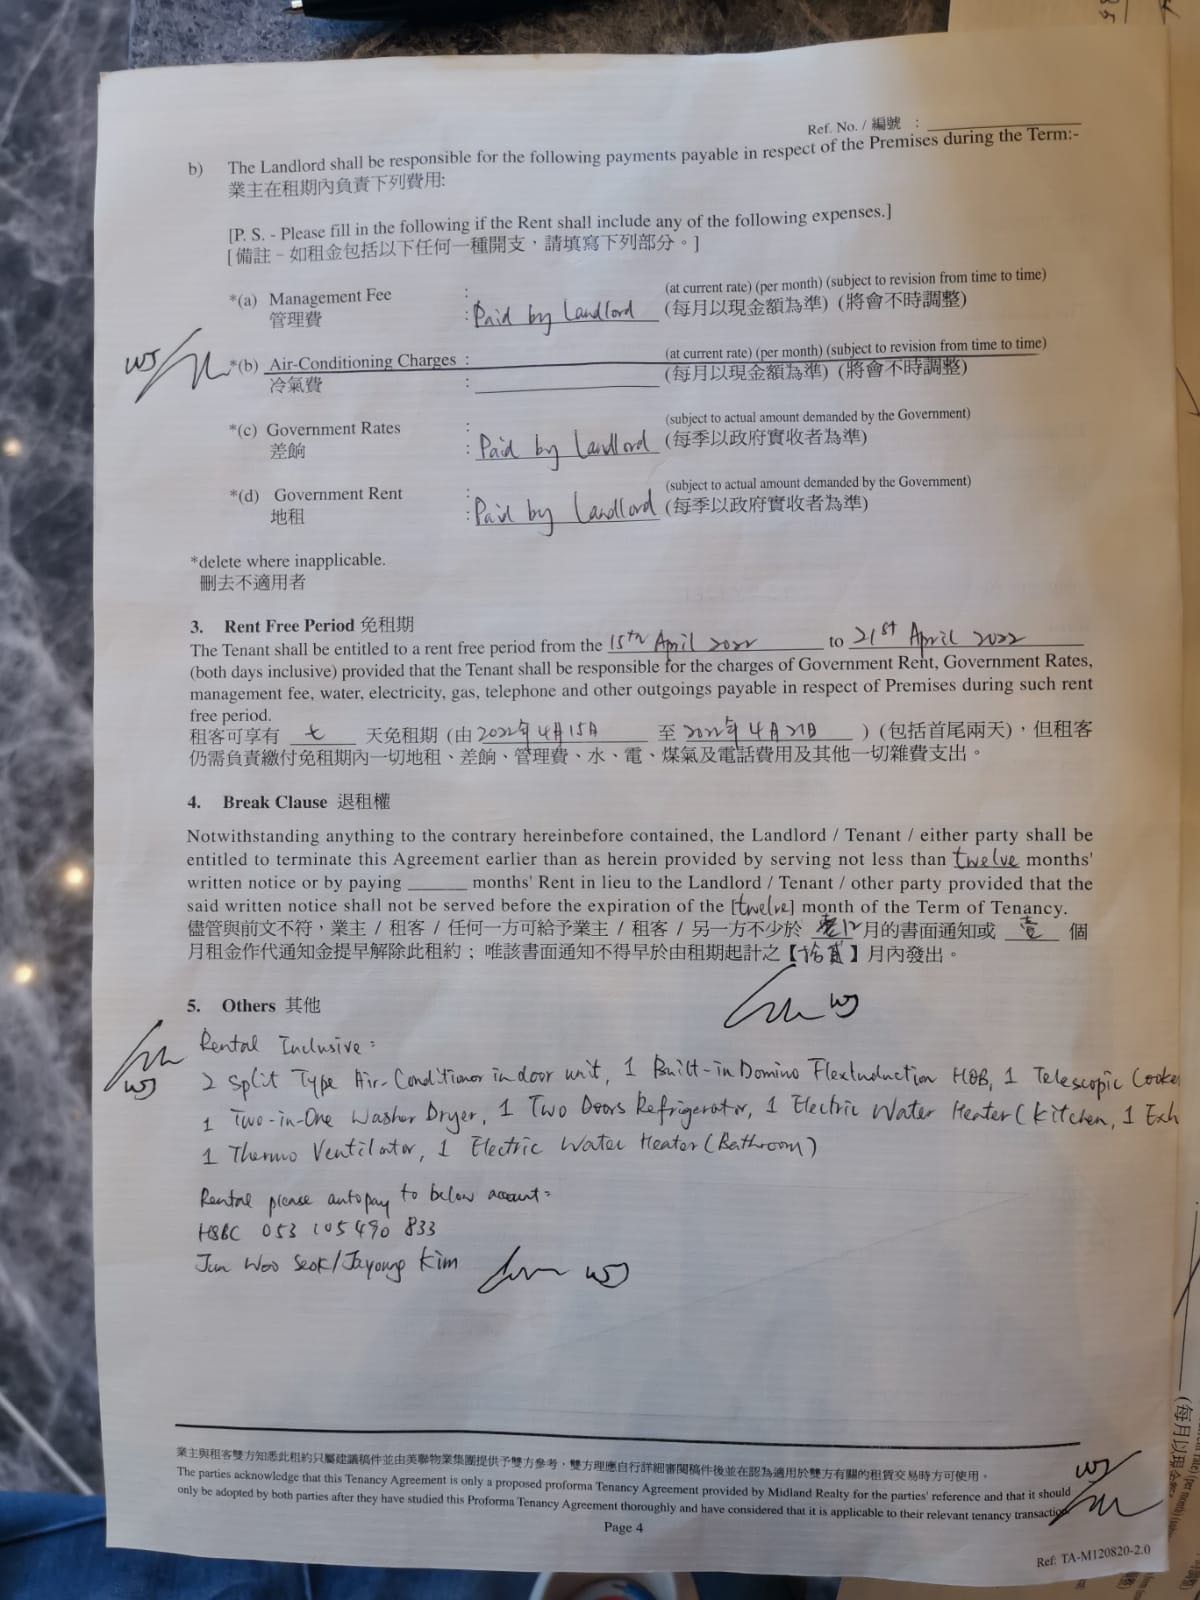 Ref. No. / 編號 :
b) The Landlord shall be responsible for the following payments payable in respect of the Premises during the Term:-
業主在租期內負責下列費用:
[P. S. - Please fill in the following if the Rent shall include any of the following expenses.]
[備註 - 如租金包括以下任何一種開支，請填寫下列部分。]
*(a) Management Fee : (at current rate) (per month) (subject to revision from time to time)
管理費 : Paid by Landlord (每月以現金額為準) (將會不時調整)
WJ
*(b) Air-Conditioning Charges : (at current rate) (per month) (subject to revision from time to time)
冷氣費 : (每月以現金額為準) (將會不時調整)
*(c) Government Rates : (subject to actual amount demanded by the Government)
差餉 : Paid by Landlord (每季以政府實收者為準)
*(d) Government Rent : (subject to actual amount demanded by the Government)
地租 : Paid by Landlord (每季以政府實收者為準)
*delete where inapplicable.
刪去不適用者
3. Rent Free Period 免租期
The Tenant shall be entitled to a rent free period from the 15th April 2022 to 21st April 2022
(both days inclusive) provided that the Tenant shall be responsible for the charges of Government Rent, Government Rates,
management fee, water, electricity, gas, telephone and other outgoings payable in respect of Premises during such rent
free period.
租客可享有 七 天免租期 (由 2022年4月15日 至 2022年4月21日 ) (包括首尾兩天)，但租客
仍需負責繳付免租期內一切地租、差餉、管理費、水、電、煤氣及電話費用及其他一切雜費支出。
4. Break Clause 退租權
Notwithstanding anything to the contrary hereinbefore contained, the Landlord / Tenant / either party shall be
entitled to terminate this Agreement earlier than as herein provided by serving not less than twelve months'
written notice or by paying ______ months' Rent in lieu to the Landlord / Tenant / other party provided that the
said written notice shall not be served before the expiration of the [twelve] month of the Term of Tenancy.
儘管與前文不符，業主 / 租客 / 任何一方可給予業主 / 租客 / 另一方不少於 12月的書面通知或 壹 個
月租金作代通知金提早解除此租約；唯該書面通知不得早於由租期起計之【拾貳】月內發出。
WJ
5. Others 其他
Rental Inclusive:
WJ
2 Split Type Air-Conditioner indoor unit, 1 Built-in Domino FlexInduction HOB, 1 Telescopic Cooke
1 Two-in-One Washer Dryer, 1 Two Doors Refrigerator, 1 Electric Water Heater (Kitchen, 1 Exh
1 Thermo Ventilator, 1 Electric Water Heater (Bathroom)
Rental please autopay to below account:
HSBC 053 105490 833
Jun Woo Seok/Jayoung Kim WJ
業主與租客雙方知悉此租約只屬建議稿件並由美聯物業集團提供予雙方參考，雙方理應自行詳細審閱稿件後並在認為適用於雙方有關的租賃交易時方可使用。
The parties acknowledge that this Tenancy Agreement is only a proposed proforma Tenancy Agreement provided by Midland Realty for the parties' reference and that it should
only be adopted by both parties after they have studied this Proforma Tenancy Agreement thoroughly and have considered that it is applicable to their relevant tenancy transaction.
WJ
Page 4
Ref: TA-M120820-2.0